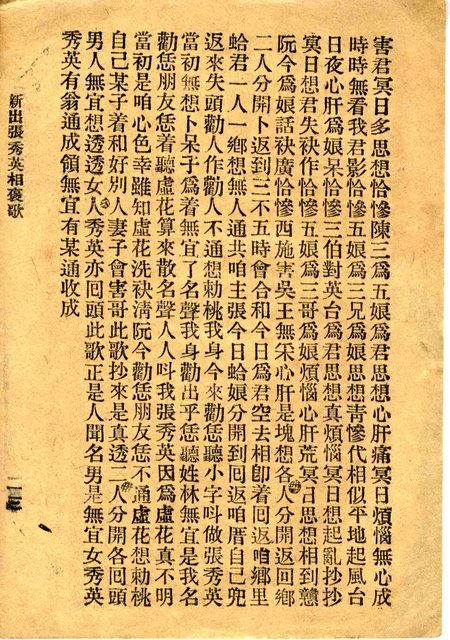 害君冥日多思想恰慘陳三為五娘為君思想心肝痛冥日煩惱無心成
時時無看我君影恰慘五娘為三兄為娘思想青慘代相似平地起風台
日夜心肝為娘呆恰慘三伯對英台為君思想真煩惱冥日想起亂抄抄
冥日想君失袂作恰慘五娘為三哥為娘煩惱心肝荒冥日思想相到戇
阮今為娘話袂廣恰慘西施害吳王無采心肝是塊想各人分開返回鄉
二人分開卜返到三不五時會合和今日為君空去相卽着囘返咱鄉里
蛤君一人一鄉想無人通共咱主張今日蛤娘分開到囘返咱厝自己兜
返來失頭勸人作勸人不通想勅桃我身今來勸恁聽小字叫做張秀英
當初無想卜呆子為着無宜了名聲我身勸出乎恁聽姓林無宜是我名
勸恁朋友恁着聽虛花算來散名聲人人叫我張秀英因為虛花真不明
當初是咱心色幸雖知虛花洗袂淸阮今勸恁朋友恁不通虛花想勅桃
自己某子着和好別人妻子會害哥此歌抄來是真透二人分開各囘頭
男人無宜想透透女人秀英亦囘頭此歌正是人聞名男是無宜女秀英
秀英有翁通成領無宜有某通收成
新出張秀英相褒歌